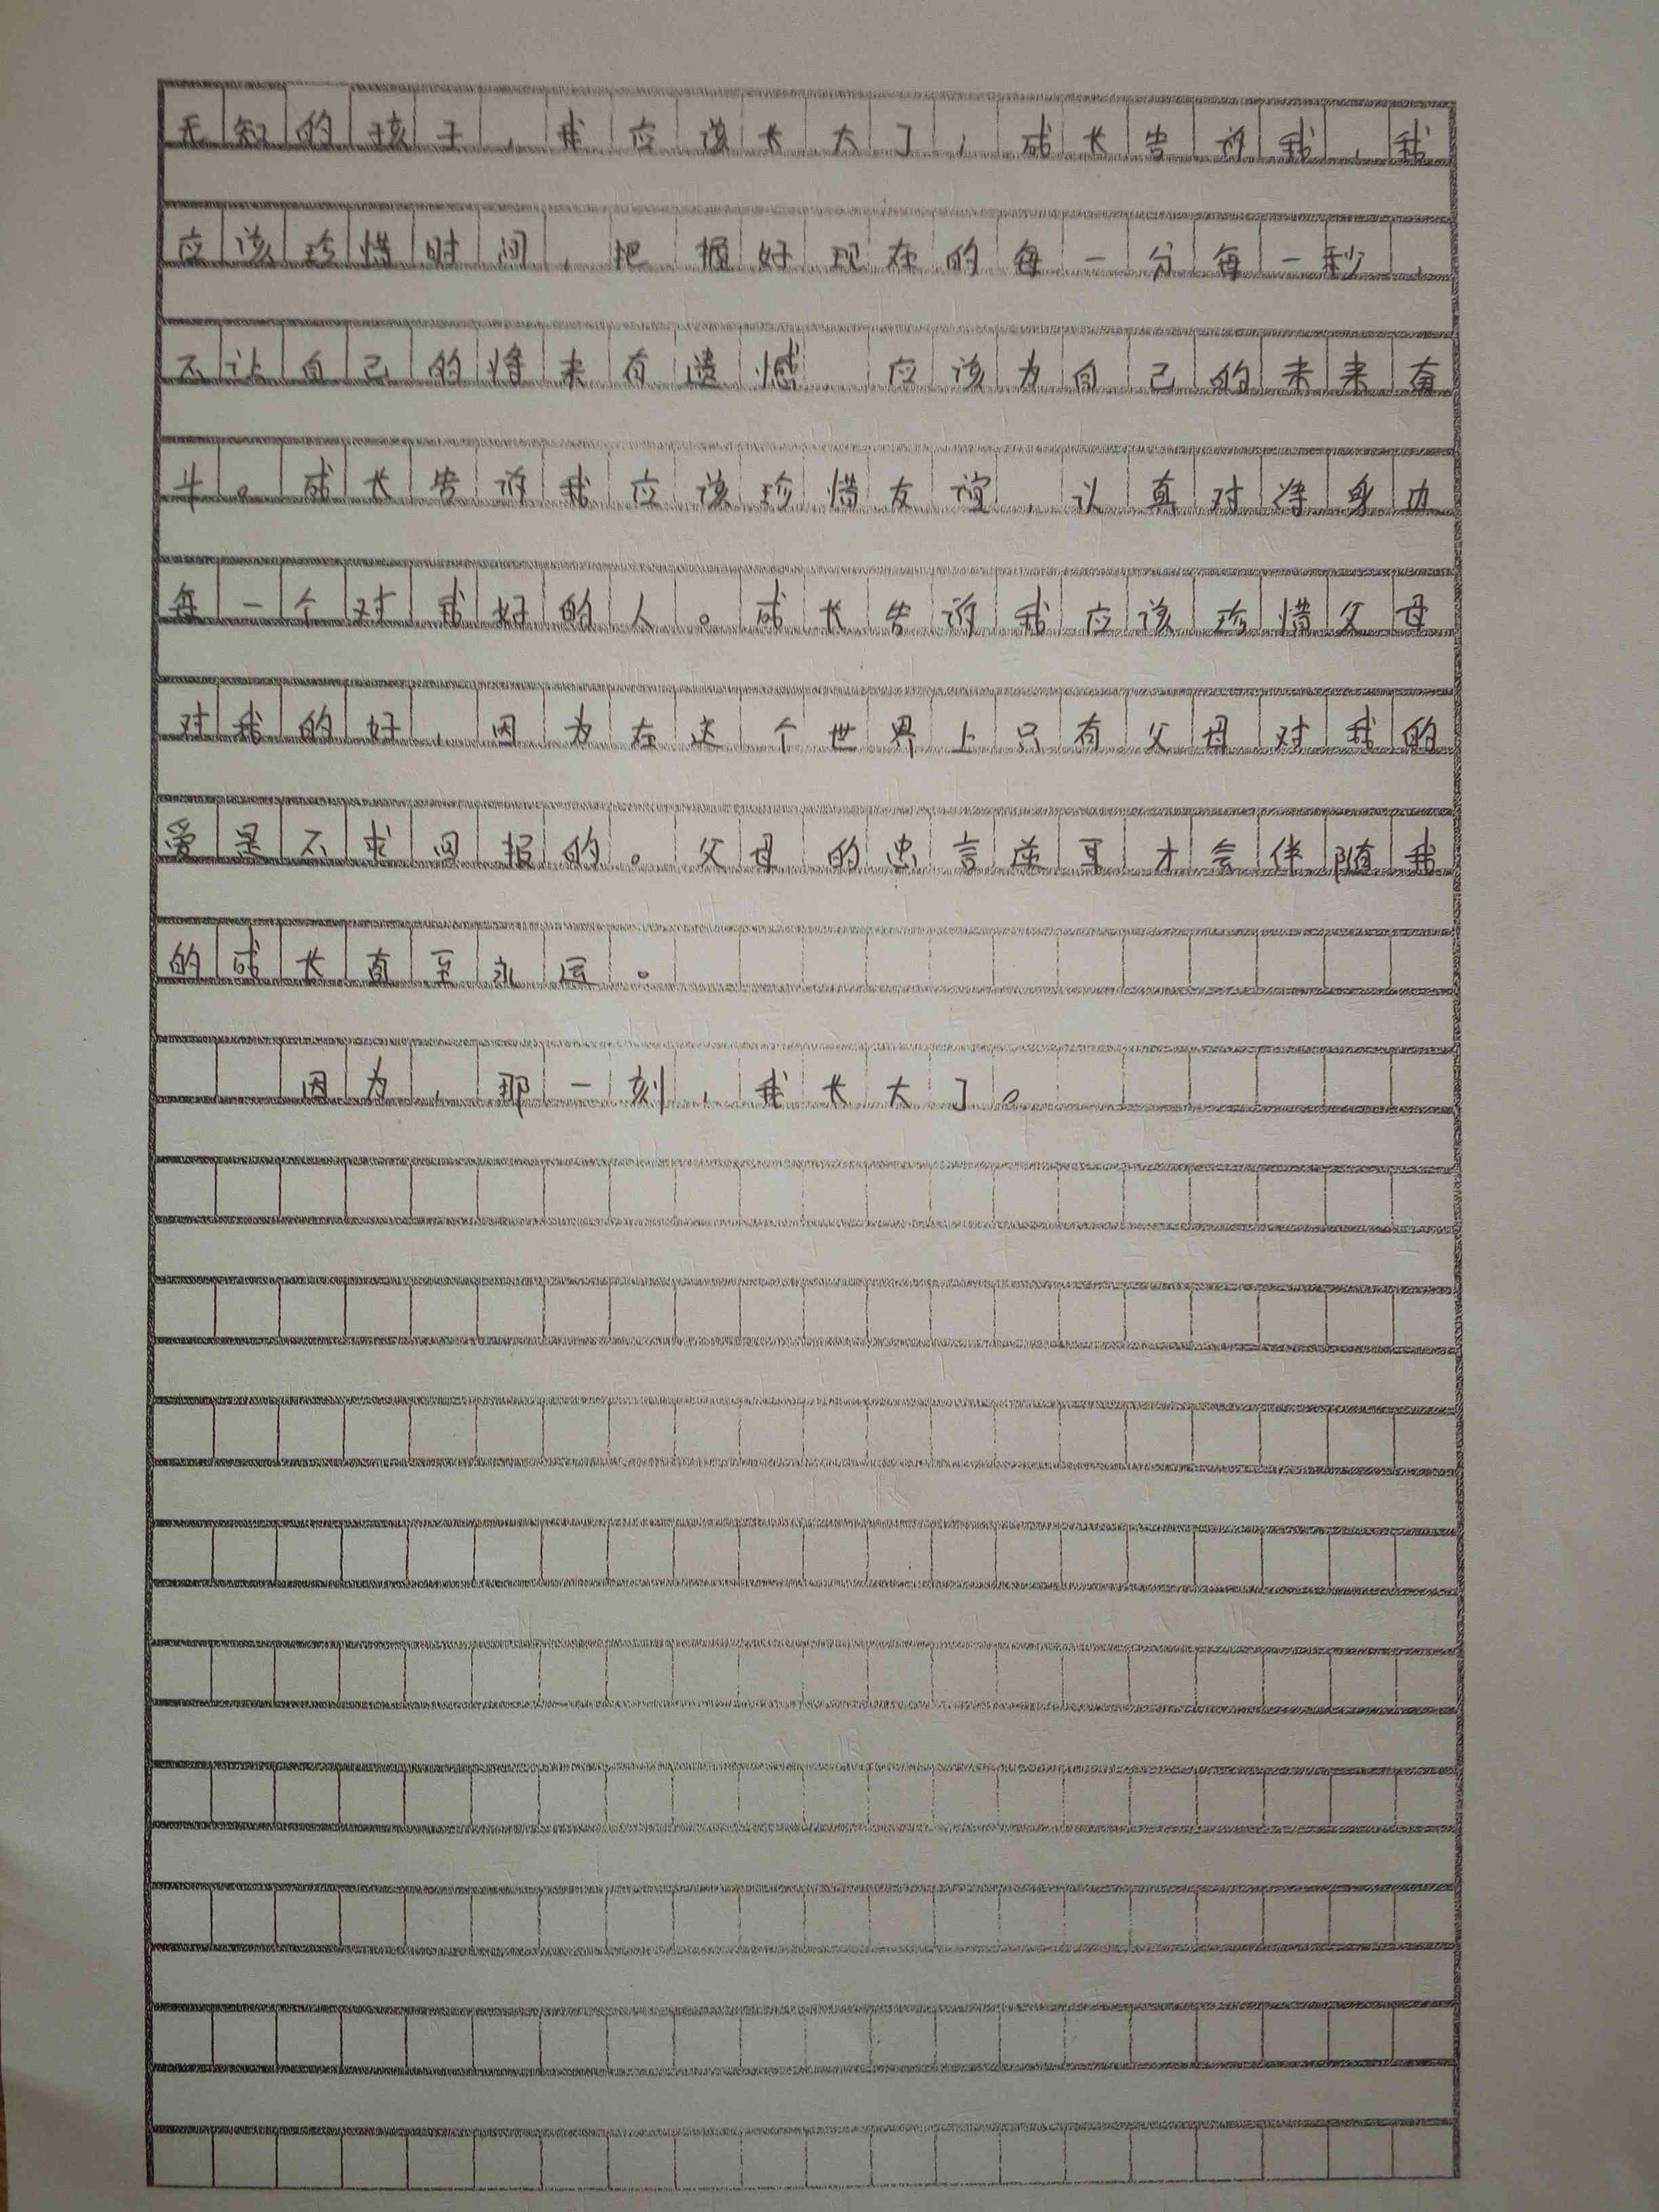 无知的孩子，我应该长大了；成长告诉我，我
应该珍惜时间，把握好现在的每一分每一秒，
不让自己的将来有遗憾，应该为自己的未来奋
斗。成长告诉我应该珍惜友谊，认真对待身边
每一个对我好的人。成长告诉我应该珍惜父母
对我的好，因为在这个世界上只有父母对我的
爱是不求回报的。父母的忠言逆耳才会伴随我
的成长直至永远。
因为，那一刻，我长大了。